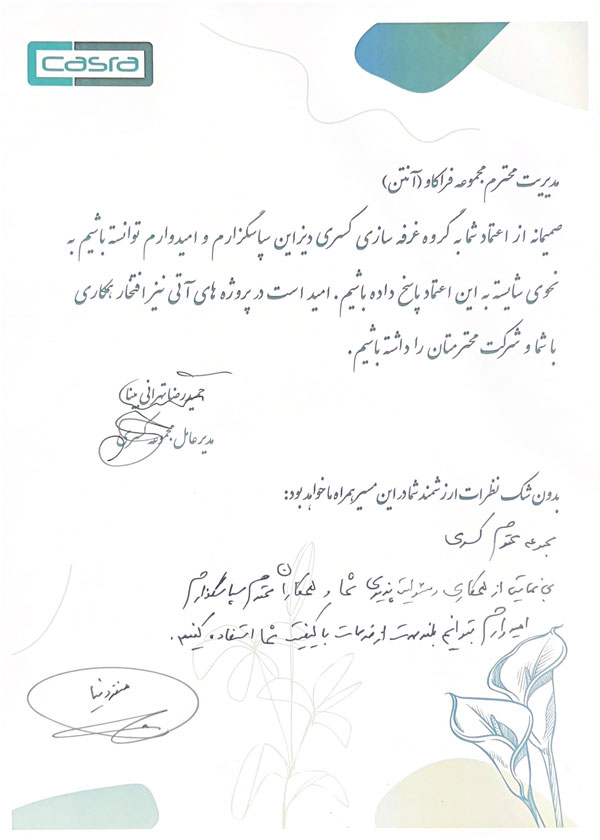 casra
مدیریت محترم مجموعه فراکاو (آنتن)
صمیمانه از اعتماد شما به گروه غرفه سازی کسری دیزاین سپاسگزارم و امیدوارم توانسته باشیم به
نحوی شایسته به این اعتماد پاسخ داده باشیم. امید است در پروژه های آتی نیز افتخار همکاری
با شما و شرکت محترمتان را داشته باشیم.
حمیدرضا تهرانی مینا
مدیرعامل مجموعه کسری
بدون شک نظرات ارزشمند شما در این مسیر همراه ما خواهد بود:
مجموعه محترم کسری
بی نهایت از همکاری و مسئولیت پذیری شما و همکاران محترم سپاسگذارم
امیدوارم بتوانیم بلندمدت از خدمات با کیفیت شما استفاده کنیم.